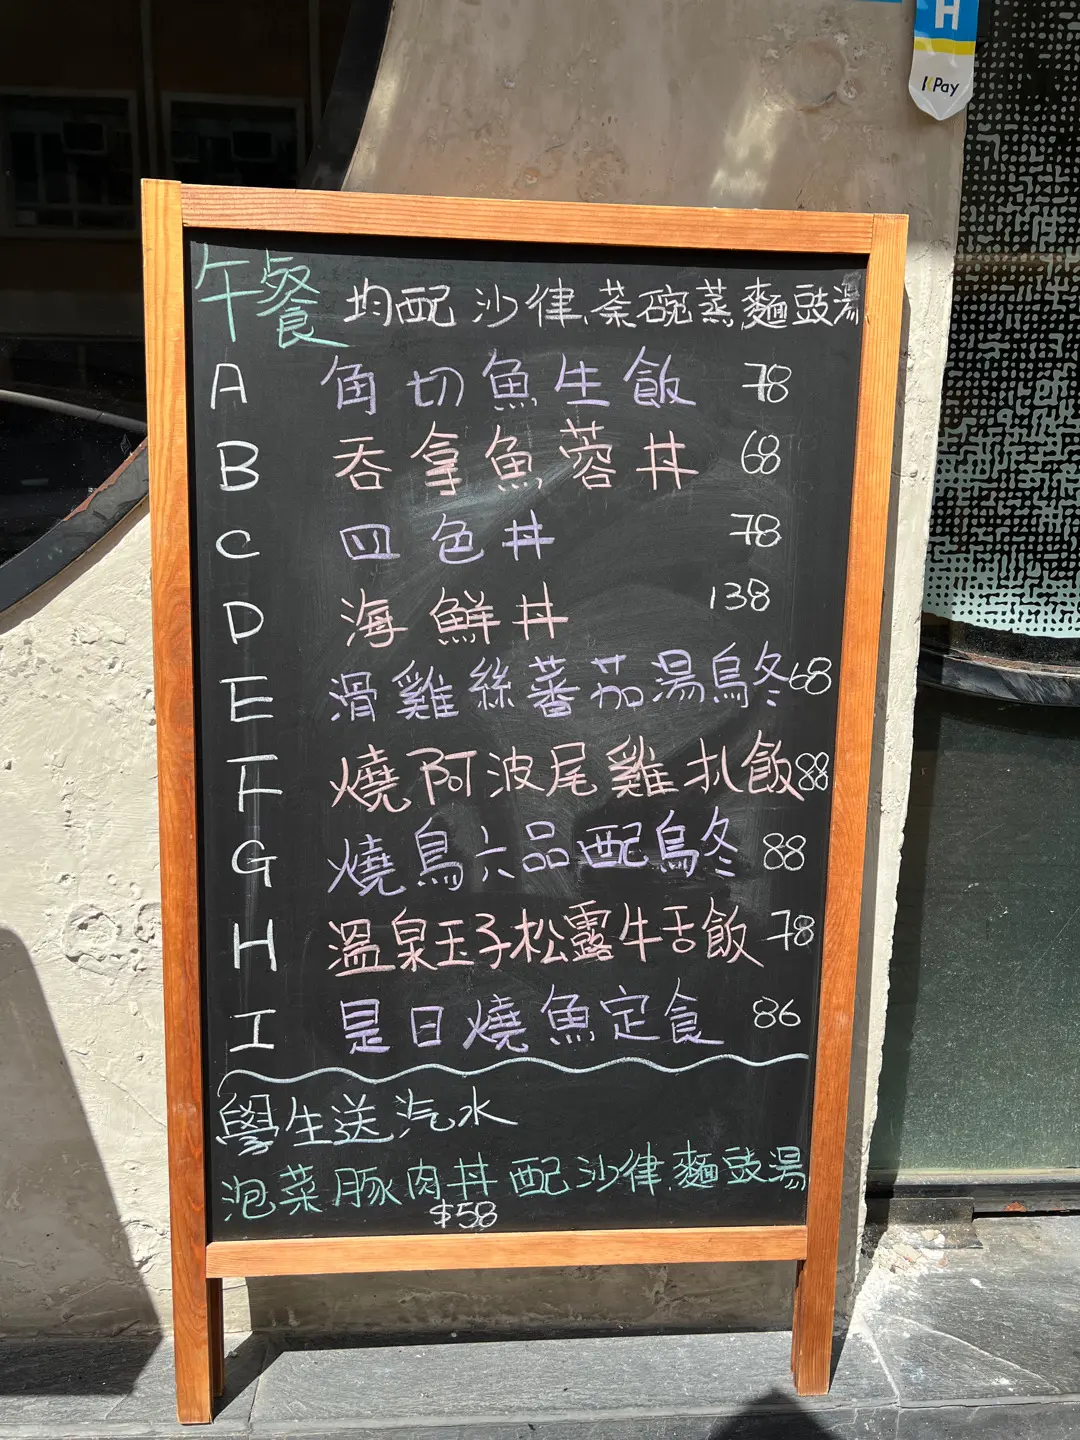 H
KPay
午餐 均配 沙律、茶碗蒸、麵豉湯
A 角切魚生飯 78
B 吞拿魚蓉丼 68
C 四色丼 78
D 海鮮丼 138
E 滑雞絲蕃茄湯烏冬 68
F 燒阿波尾雞扒飯 88
G 燒鳥六品配烏冬 88
H 溫泉玉子松露牛舌飯 78
I 是日燒魚定食 86
學生送汽水
泡菜豚肉丼配沙律、麵豉湯
$58